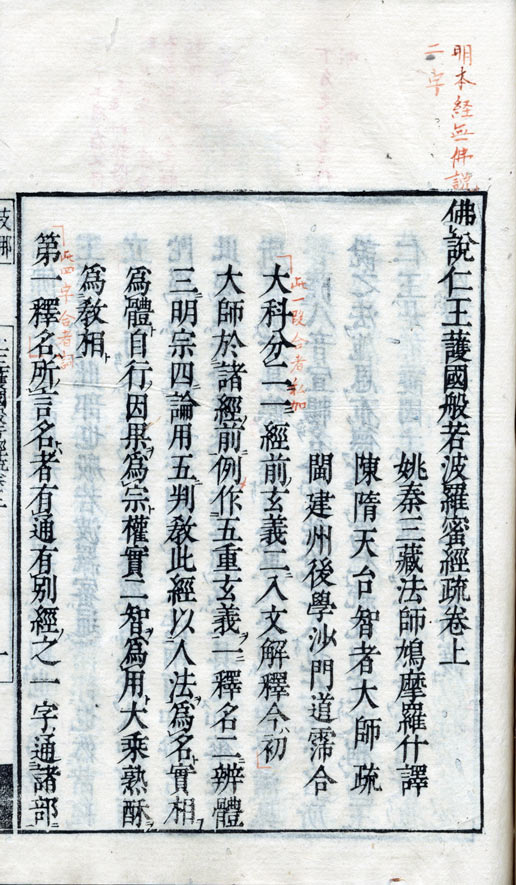 明本経無佛説
二字
佛說仁王護國般若波羅蜜經疏卷上
姚秦三藏法師鳩摩羅什譯
陳隋天台智者大師疏
閩建州後學沙門道霈合
此一段合者私加
大科分二一經前玄義二入文解釋今初
大師於諸經前例作五重玄義一釋名二辨體
三明宗四論用五判教此經以人法爲名實相
爲體自行因果爲宗權實二智爲用大乘熟酥
爲教相
此四字合者詞
第一釋名所言名者有通有别經之一字通諸部